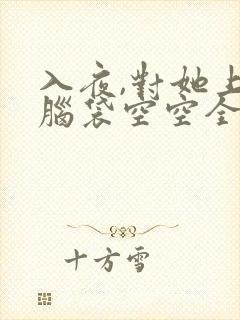 入夜,對她上
腦袋空空全
十方雪